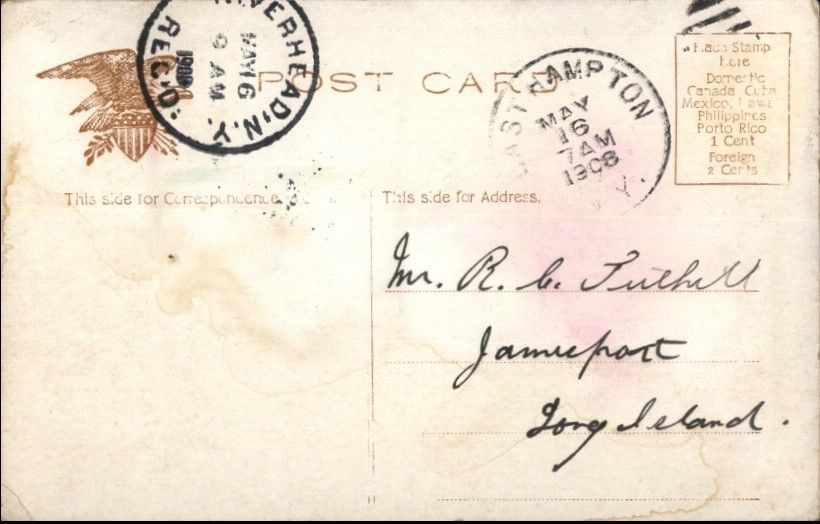 RIVERHEAD, N.Y.
MAY 16
9 AM.
1908
REC'D.
POST CARD
EAST HAMPTON
MAY
16
7AM
1908
N.Y.
Place Stamp
Here
Domestic
Canada Cuba
Mexico, Hawaii
Philippines
Porto Rico
1 Cent
Foreign
2 Cents
This side for Correspondence.
This side for Address.
Mr. R. C. Tuthill
Jamesport
Long Island.